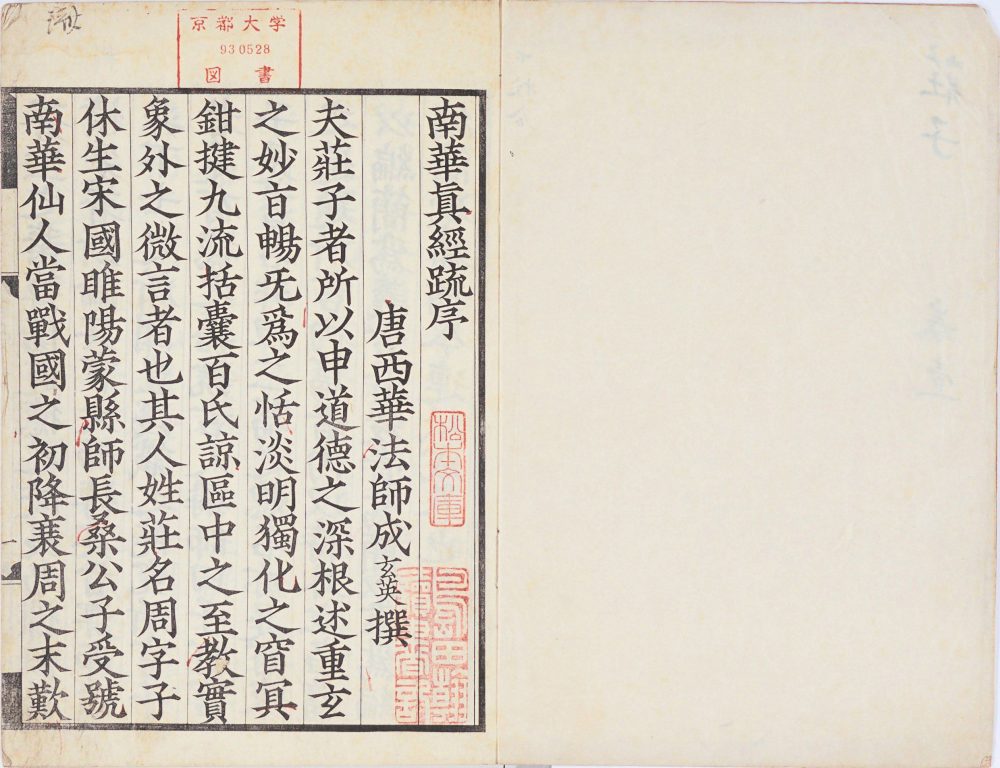 京都大学
930528
図書
南華眞經疏序
唐西華法師成玄英撰
夫莊子者所以申道德之深根述重玄
之妙㫖暢旡爲之恬淡明獨化之窅㝠
鉗揵九流括囊百氏諒區中之至教實
象外之微言者也其人姓莊名周字子
休生宋國睢陽蒙縣師長桑公子受號
南華仙人當戰國之初降衰周之末歎